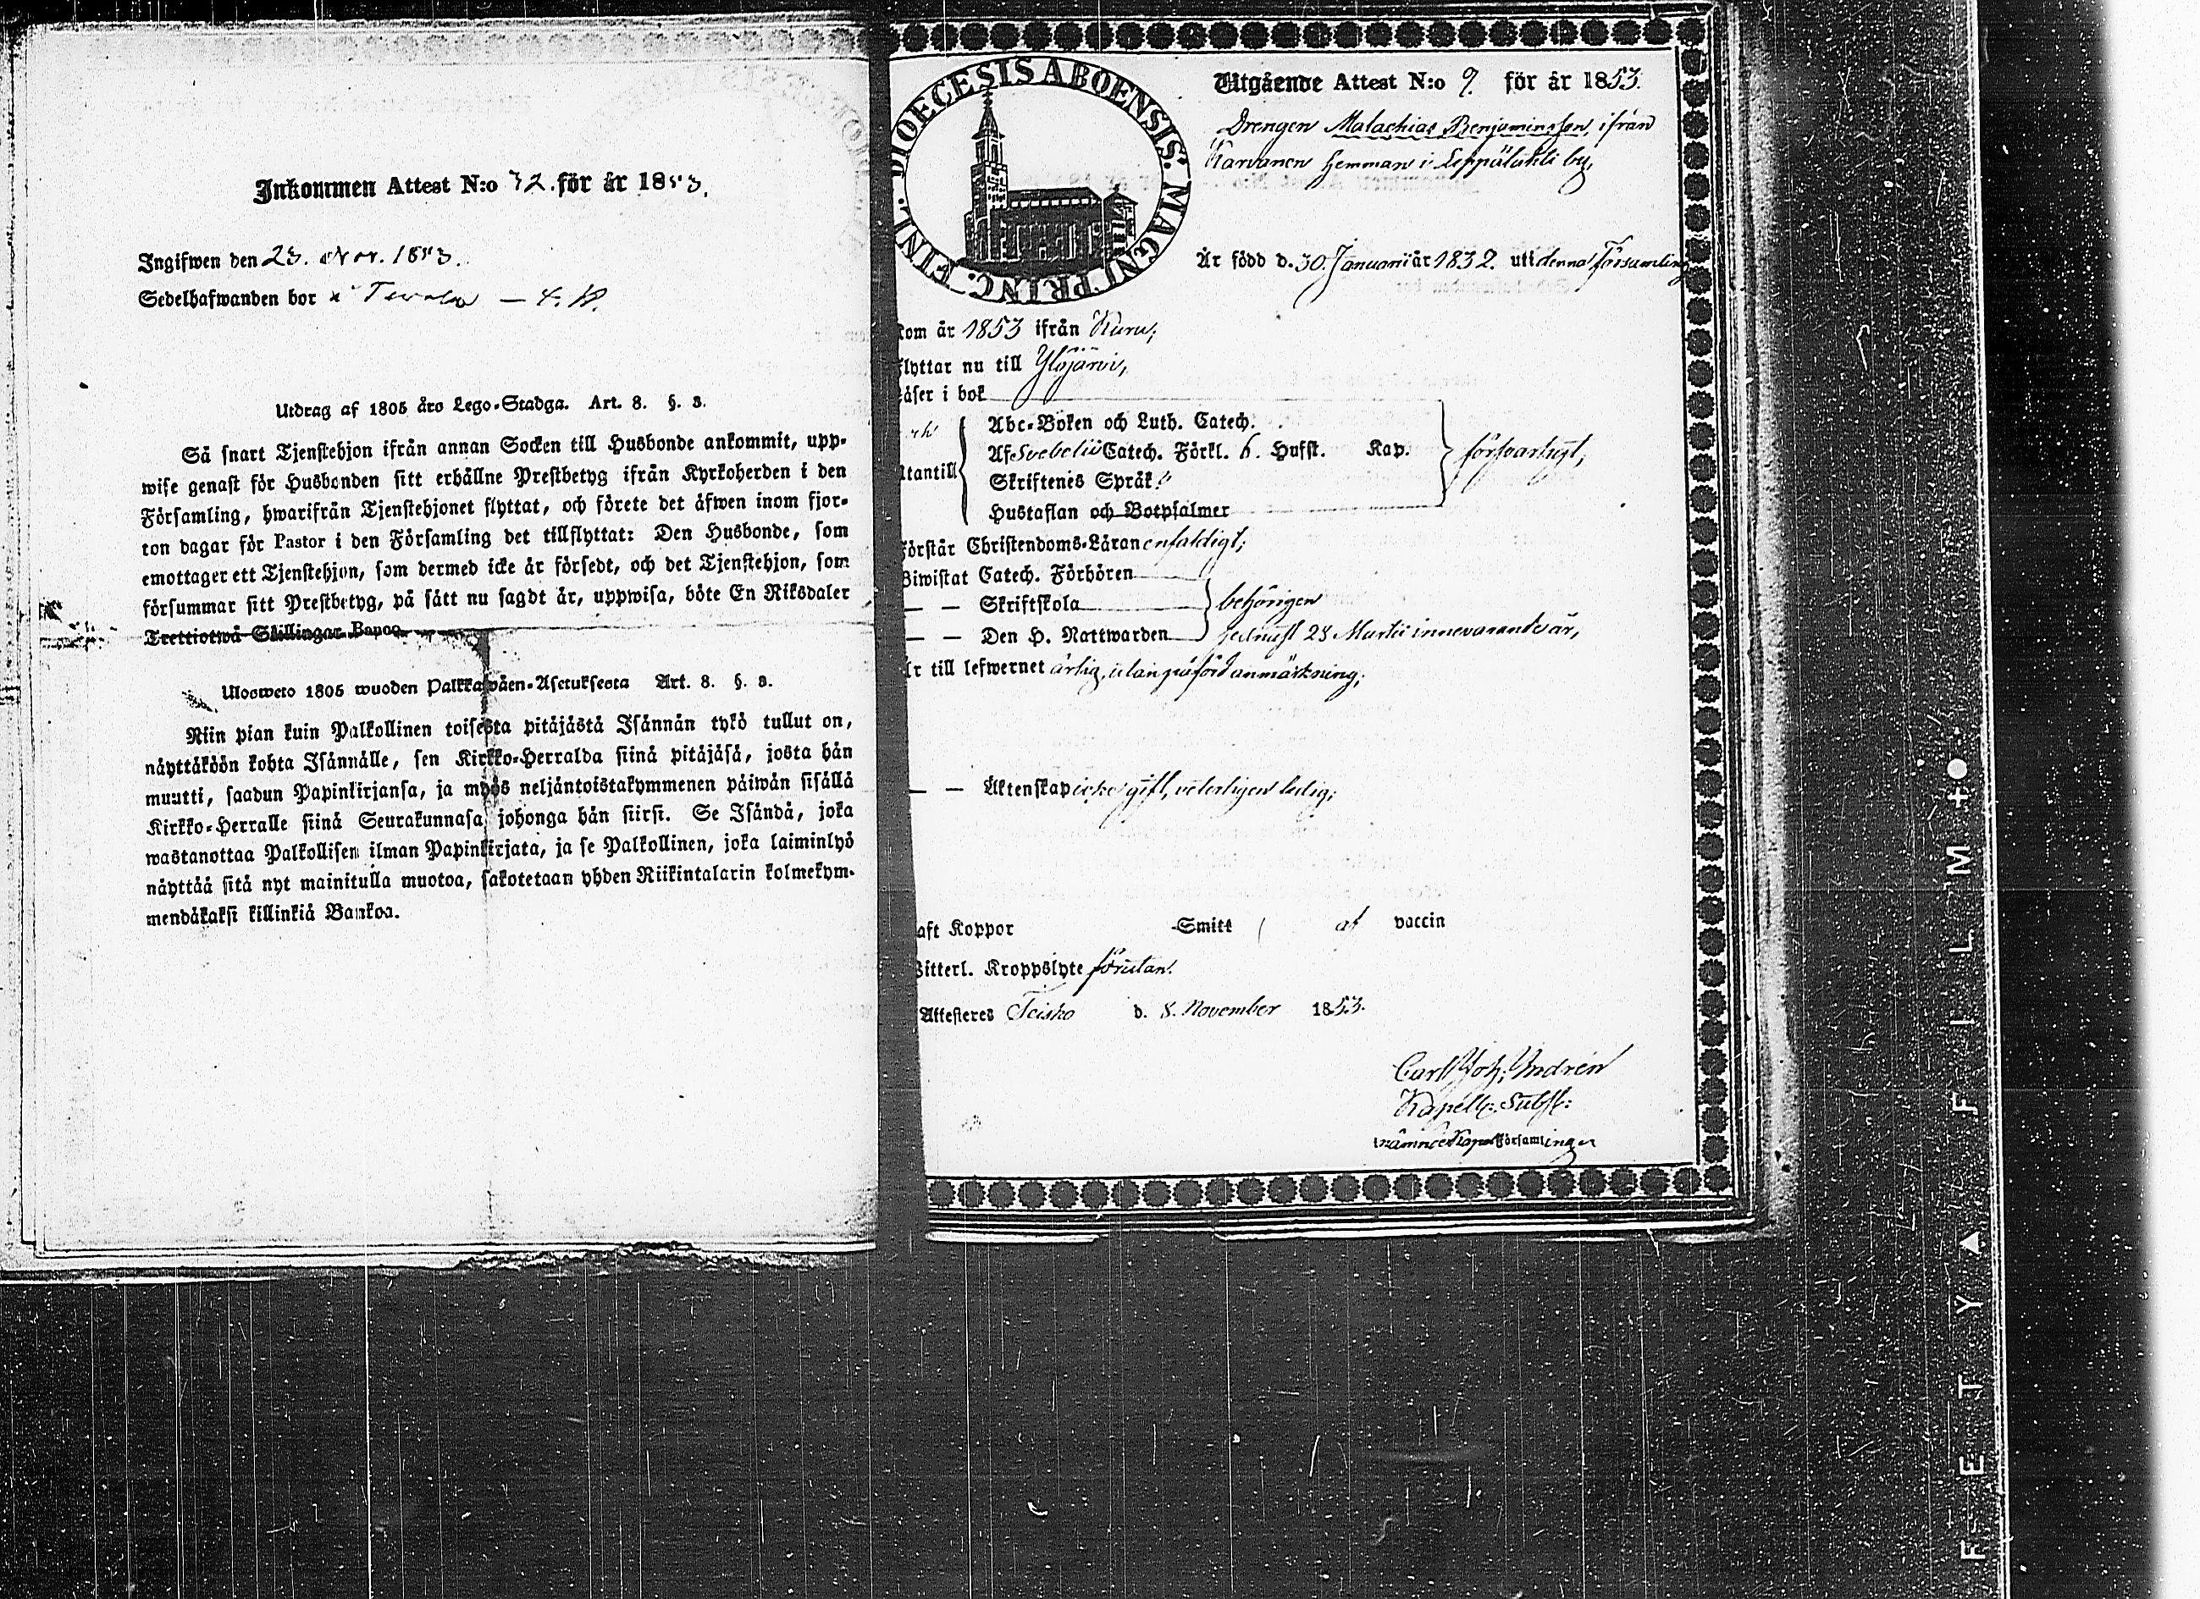 Inkommen Attest N:o 32. för år 1853.
Ingifwen den 23. Nov. 1853.
Sedelhafwanden bor i
Utdrag af 1805 års Lego-Stadga. Art. 8. §. 3.
Så snart Tjenstehjon ifrån annan Socken till Husbonde ankommit, upp-
wise genast för Husbonden sitt erhållne Prestbetyg ifrån Kyrkoherden i den
Församling, hwarifrån Tjenstehjonet flyttat, och förete det äfwen inom fjor-
ton dagar för Pastor i den Församling det tillflyttat: Den Husbonde, som
emottager ett Tjenstehjon, som dermed icke är försedt, och det Tjenstehjon, som
försummar sitt Prestbetyg, på sätt nu sagdt är, uppwisa, böte En Riksdaler
Trettiotwå Skillingar Banco.
Ulosweto 1805 wuoden Palkkawäen-Asetuksesta Art. 8. §. 3.
Niin pian kuin Palkollinen toisesta pitäjästä Isännän tykö tullut on,
näyttäköön kohta Isännälle, sen Kirkko-Herralda siinä pitäjäsä, josta hän
muutti, saadun Papinkirjansa, ja myös neljäntoistakymmenen päiwän sisällä
Kirkko-Herralle siinä Seurakunnasa johonga hän siirsi. Se Isändä, joka
wastanottaa Palkollisen ilman Papinkirjata, ja se Palkollinen, joka laiminlyö
näyttää sitä nyt mainitulla muotoa, sakotetaan yhden Riikintalarin kolmekym-
mendäkaksi killinkiä Bankoa.
DIOECESIS ABOENSIS. MAGNI PRINC. FINL.
Utgående Attest N:o 9. för år 1853.
Drengen Malachias Benjaminsson, ifrån
Karvanen hemman i Leppälahti by,
Är född d. 30. Januari år 1832. uti denna Församling
kom år 1853 ifrån Kuru;
flyttar nu till Ylöjärvi,
läser i bok
och
Abc-Boken och Luth. Catech.
Af Svebelii Catech. Förkl. 6. Hufst. Kap.
försvarligt,
utantill
Skriftenes Språk
Hustaflan och Botpsalmer
förstår Christendoms-Läran enfaldigt;
Biwistat Catech. Förhören
— — Skriftskola
behörigen
— — Den H. Nattwarden
sednast 28 Martii innevarande år,
är till lefwernet ärlig, utan påförd anmärkning;
— — Äktenskap icke gift, veterligen ledig;
haft Koppor Smitt af vaccin
Witterl. Kroppslyte förutan.
Attesteres Teisko d. 8. November 1853.
Carl Joh: Andrén
Kapell: Subst:
nämnde Kapell församlingen
F E T Y ▲ F I L M + ●